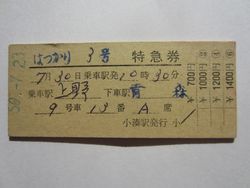 はつかり 3号 特急券
7月30日乗車駅発10時30分
乗車駅 上野 下車駅 青森
9号車 13番 A席
小湊駅発行
50.-7.23
700円
1000円
1200円
1400円